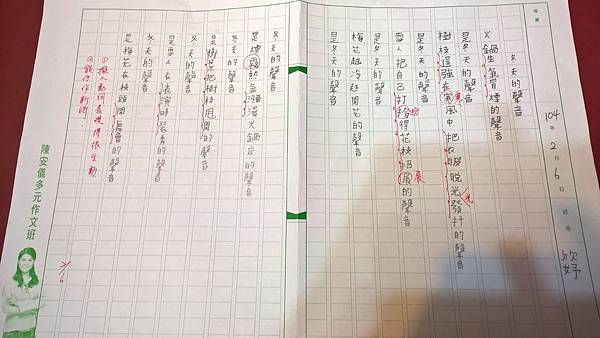 104年2月6日 姓名 欣妤
冬天的聲音
火鍋生氣冒煙的聲音
是冬天的聲音
樹枝逞強在寒風中把衣服脫光發抖的聲音
寒
光
是冬天的聲音
雪人把自己打扮得花枝招展的聲音
扮
展
是冬天的聲音
梅花越冷越開花的聲音
是冬天的聲音
冬天的聲音
是煙霧熱氣瀰漫火鍋店的聲音
冬天的聲音
是樹葉把樹枝甩開的聲音
冬天的聲音
是雪人在表演時裝秀的聲音
冬天的聲音
是梅花在枝頭開舞會的聲音
①擬人動詞表現得很生動
陳安儀多元作文班